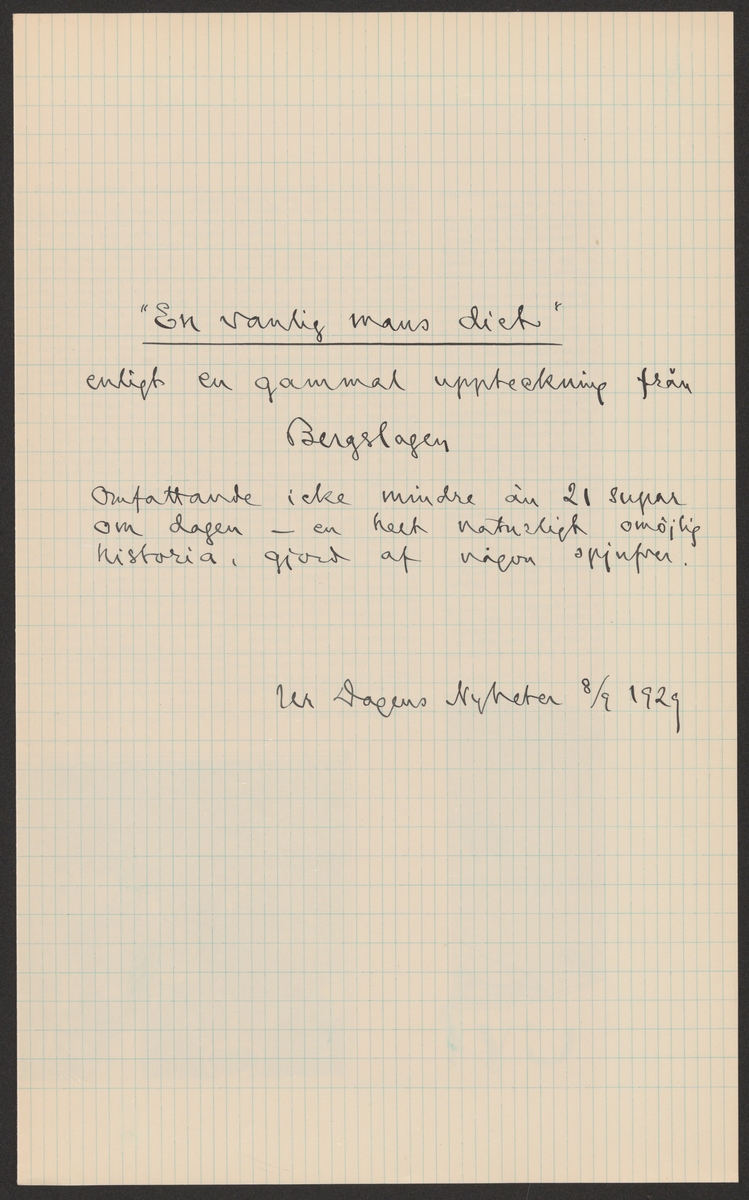 "En vanlig mans diet"
enligt en gammal uppteckning från
Bergslagen
Omfattande icke mindre än 21 supar
om dagen – en helt naturligt omöjlig
historia, gjord af någon spjufver.
Ur Dagens Nyheter 8/9 1929